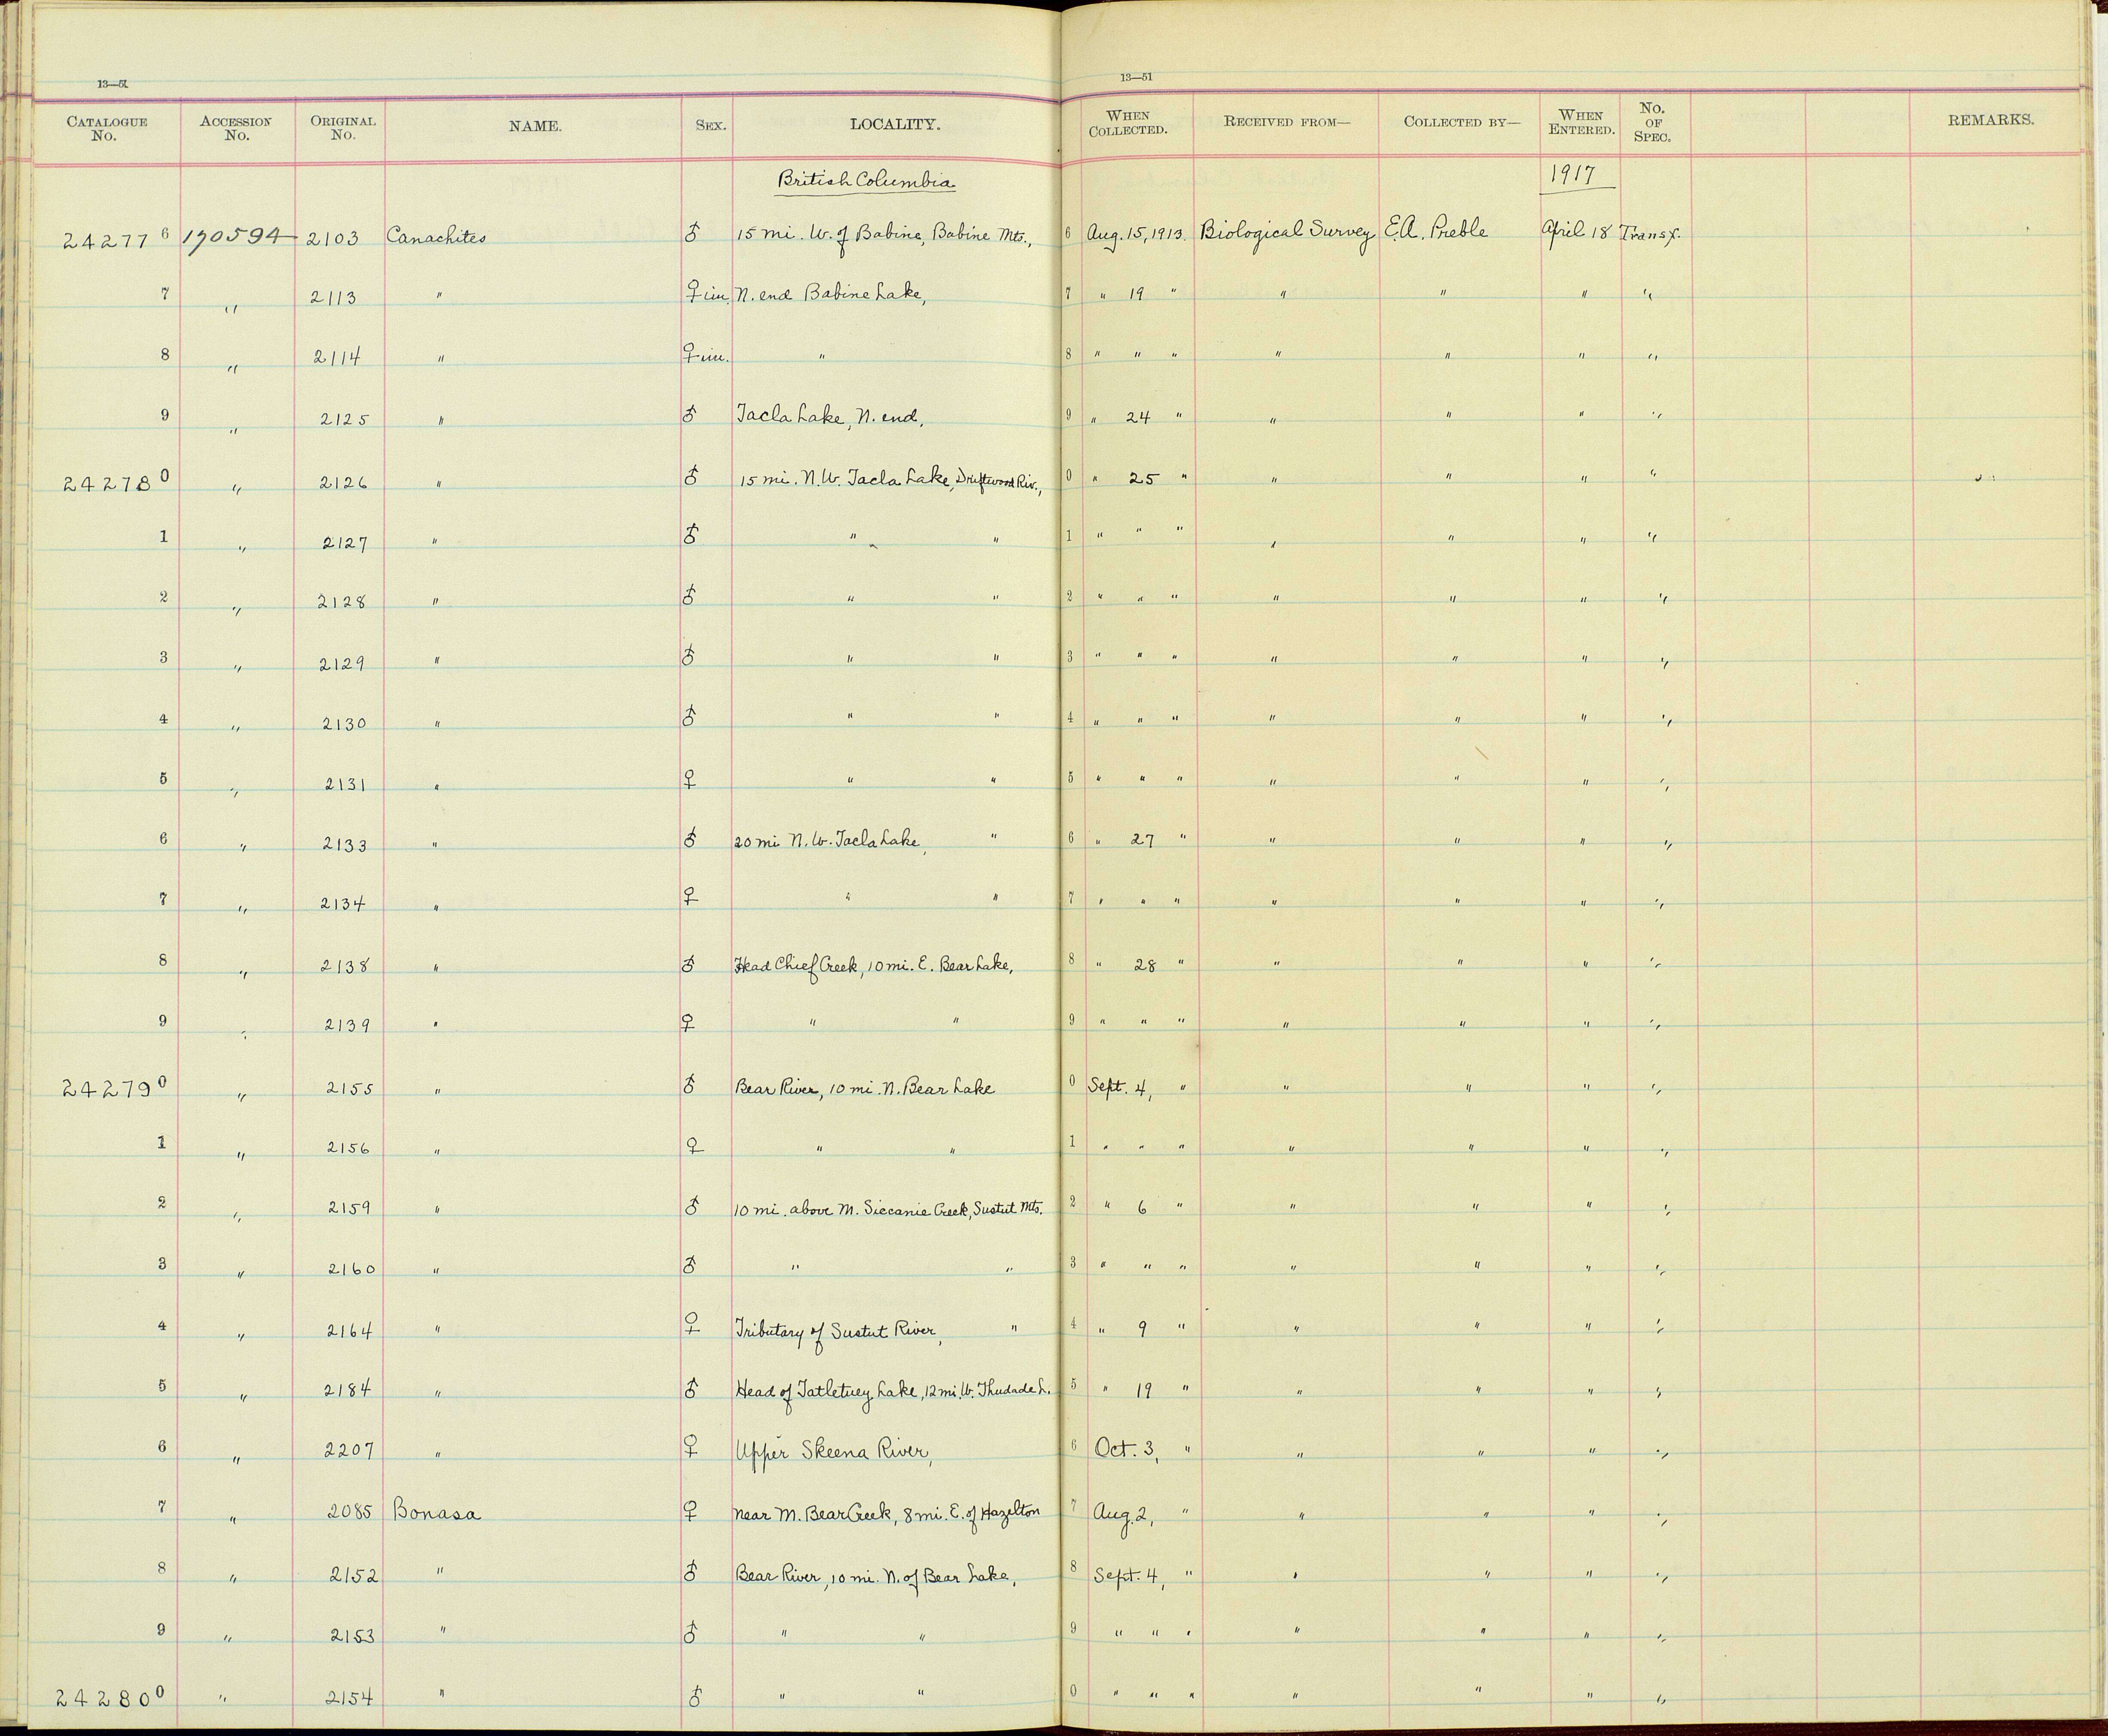 13—51 13—51
CATALOGUE No. ACCESSION No. ORIGINAL No. NAME. SEX. LOCALITY. WHEN COLLECTED. RECEIVED FROM— COLLECTED BY— WHEN ENTERED. No. OF SPEC. REMARKS.
British Columbia 1917
242776 170594 2103 Canachites ♂ 15 mi. W. of Babine, Babine Mts., 6 Aug. 15, 1913. Biological Survey E.A. Preble April 18 Transf.
7 " 2113 " ♀ im. N. end Babine Lake, 7 " 19 " " " " "
8 " 2114 " ♀ im. " 8 " " " " " " "
9 " 2125 " ♂ Tacla Lake, N. end, 9 " 24 " " " " "
242780 " 2126 " ♂ 15 mi. N.W. Tacla Lake, Driftwood Riv., 0 " 25 " " " " "
1 " 2127 " ♂ " " 1 " " " " " " "
2 " 2128 " ♂ " " 2 " " " " " " "
3 " 2129 " ♂ " " 3 " " " " " " "
4 " 2130 " ♂ " " 4 " " " " " " "
5 " 2131 " ♀ " " 5 " " " " " " "
6 " 2133 " ♂ 20 mi N.W. Tacla Lake, " 6 " 27 " " " " "
7 " 2134 " ♀ " " 7 " " " " " " "
8 " 2138 " ♂ Head Chief Creek, 10 mi. E. Bear Lake, 8 " 28 " " " " "
9 " 2139 " ♀ " " 9 " " " " " " "
242790 " 2155 " ♂ Bear River, 10 mi. N. Bear Lake 0 Sept. 4, " " " " "
1 " 2156 " ♀ " " 1 " " " " " " "
2 " 2159 " ♂ 10 mi. above M. Siccanie Creek, Sustut Mts. 2 " 6 " " " " "
3 " 2160 " ♂ " " 3 " " " " " " "
4 " 2164 " ♀ Tributary of Sustut River, " 4 " 9 " " " " "
5 " 2184 " ♂ Head of Tatletuey Lake, 12 mi. W. Thudade L. 5 " 19 " " " " "
6 " 2207 " ♀ Upper Skeena River, 6 Oct. 3, " " " " "
7 " 2085 Bonasa ♀ near M. Bear Creek, 8 mi. E. of Hazelton 7 Aug. 2, " " " " "
8 " 2152 " ♂ Bear River, 10 mi. N. of Bear Lake, 8 Sept. 4, " " " " "
9 " 2153 " ♂ " " 9 " " " " " " "
242800 " 2154 " ♂ " " 0 " " " " " " "